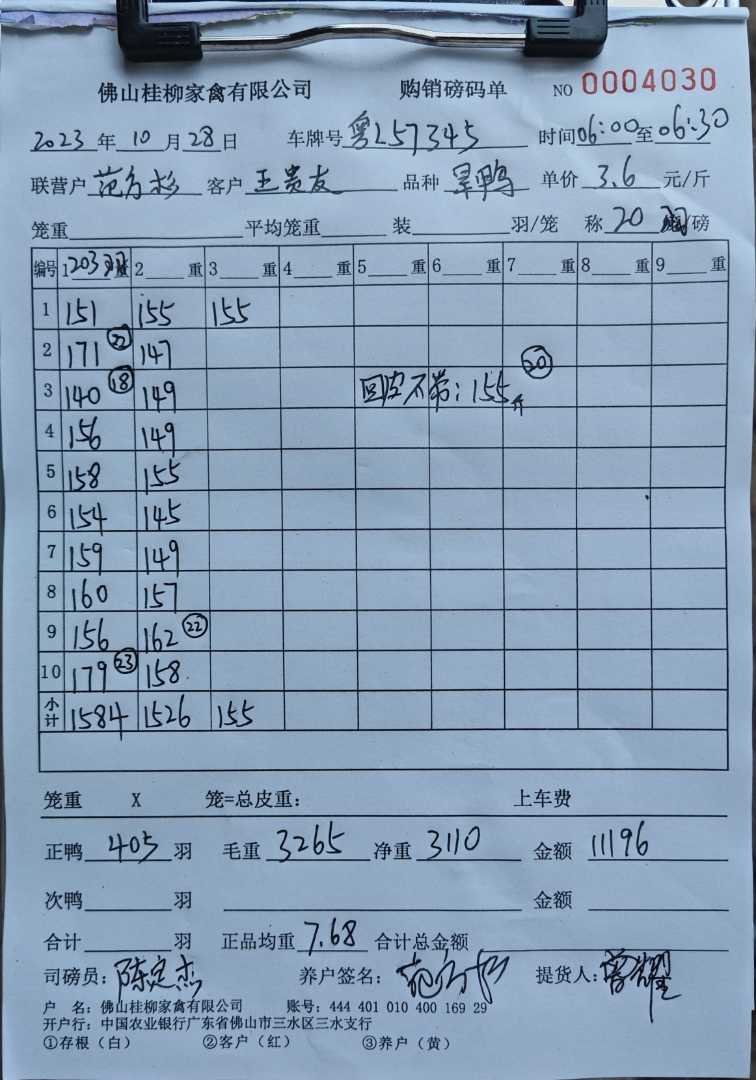 佛山桂柳家禽有限公司 购销磅码单 NO 0004030
2023年10月28日 车牌号粤L57345 时间06:00至06:30
联营户 范 客户 王贵友 品种 鸭 单价 3.6 元/斤
笼重 平均笼重 装 羽/笼 称 20 /磅
编号 1 203 重 2 重 3 重 4 重 5 重 6 重 7 重 8 重 9 重
1 151 155 155
2 171 22 147
3 140 18 149 回皮不带:155斤 20
4 156 149
5 158 155
6 154 145
7 159 149
8 160 157
9 156 162 22
10 179 23 158
小计 1584 1526 155
笼重 X 笼=总皮重: 上车费
正鸭 405 羽 毛重 3265 净重 3110 金额 11196
次鸭 羽 金额
合计 羽 正品均重 7.68 合计总金额
司磅员: 陈定杰 养户签名: 范 提货人: 曾耀
户 名: 佛山桂柳家禽有限公司 账号: 444 401 010 400 169 29
开户行: 中国农业银行广东省佛山市三水区三水支行
①存根(白) ②客户(红) ③养户(黄)